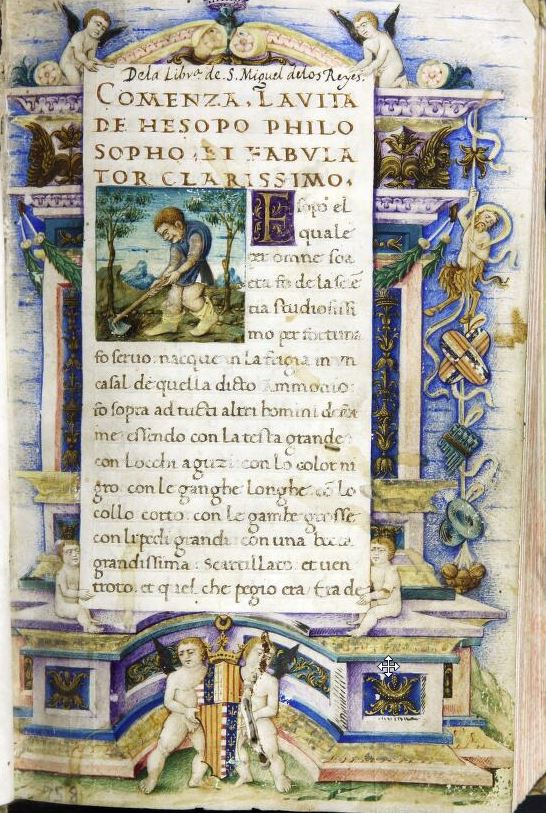 Dela Libra de S. Miguel delos Reyes.
COMENZA, LA VITA
DE HESOPO PHILO
SOPHO, ET FABVLA
TOR CLARISSIMO,
Esopo el
quale
per omne
de la
tia studiosissi
mo per fortuna
fo seruo: nacque in la frigia in vn
casal de quella dicto Ammonio:
fo sopra ad tucti altri homini de
me: essendo con la testa grande
con Locchi aguzi: con lo color ni
gro: con le ganghe longhe: cō lo
collo cotto: con le gambe grosse
con li piedi grandi: con una bocca
grandissima: Scartillato: et uen
troto: et quel che pegio era / Era de